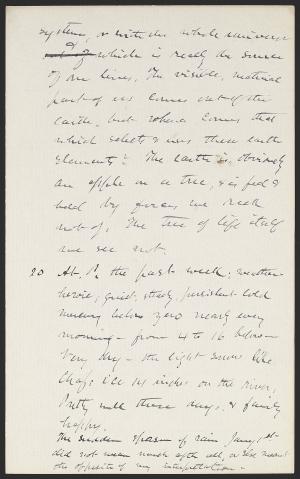 system, or with the whole universe
of which is really the source
of our lives. The visible, material
part of us comes out of the
earth, but whence comes that
which selects & uses these earth
elements? The earth is obviously
an apple on a tree, & is fed &
held by forces we reck
not of. The tree of life itself
we see not.
20 At. P. the past week; weather
heroic, quiet, steady, persistent cold
mercury below zero nearly every
morning - from 4 to 16 below -
Very dry - the light snow like
chaff. Ice 14 inches on the river,
Pretty well these days, & fairly
happy.
The sudden spasm of rain Jany 1st
did not mean much after all, or else meant
the opposite of my interpretation -